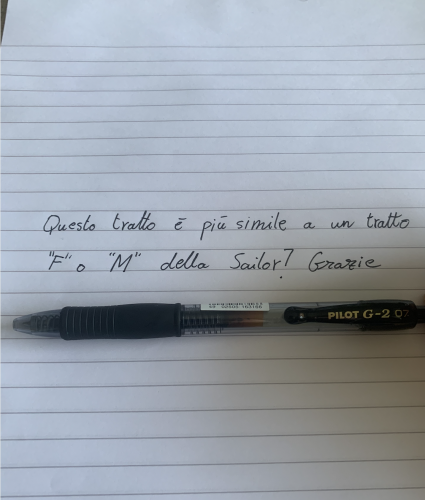 Questo tratto è più simile a un tratto
"F" o "M" della Sailor? Grazie
PILOT G-2 07